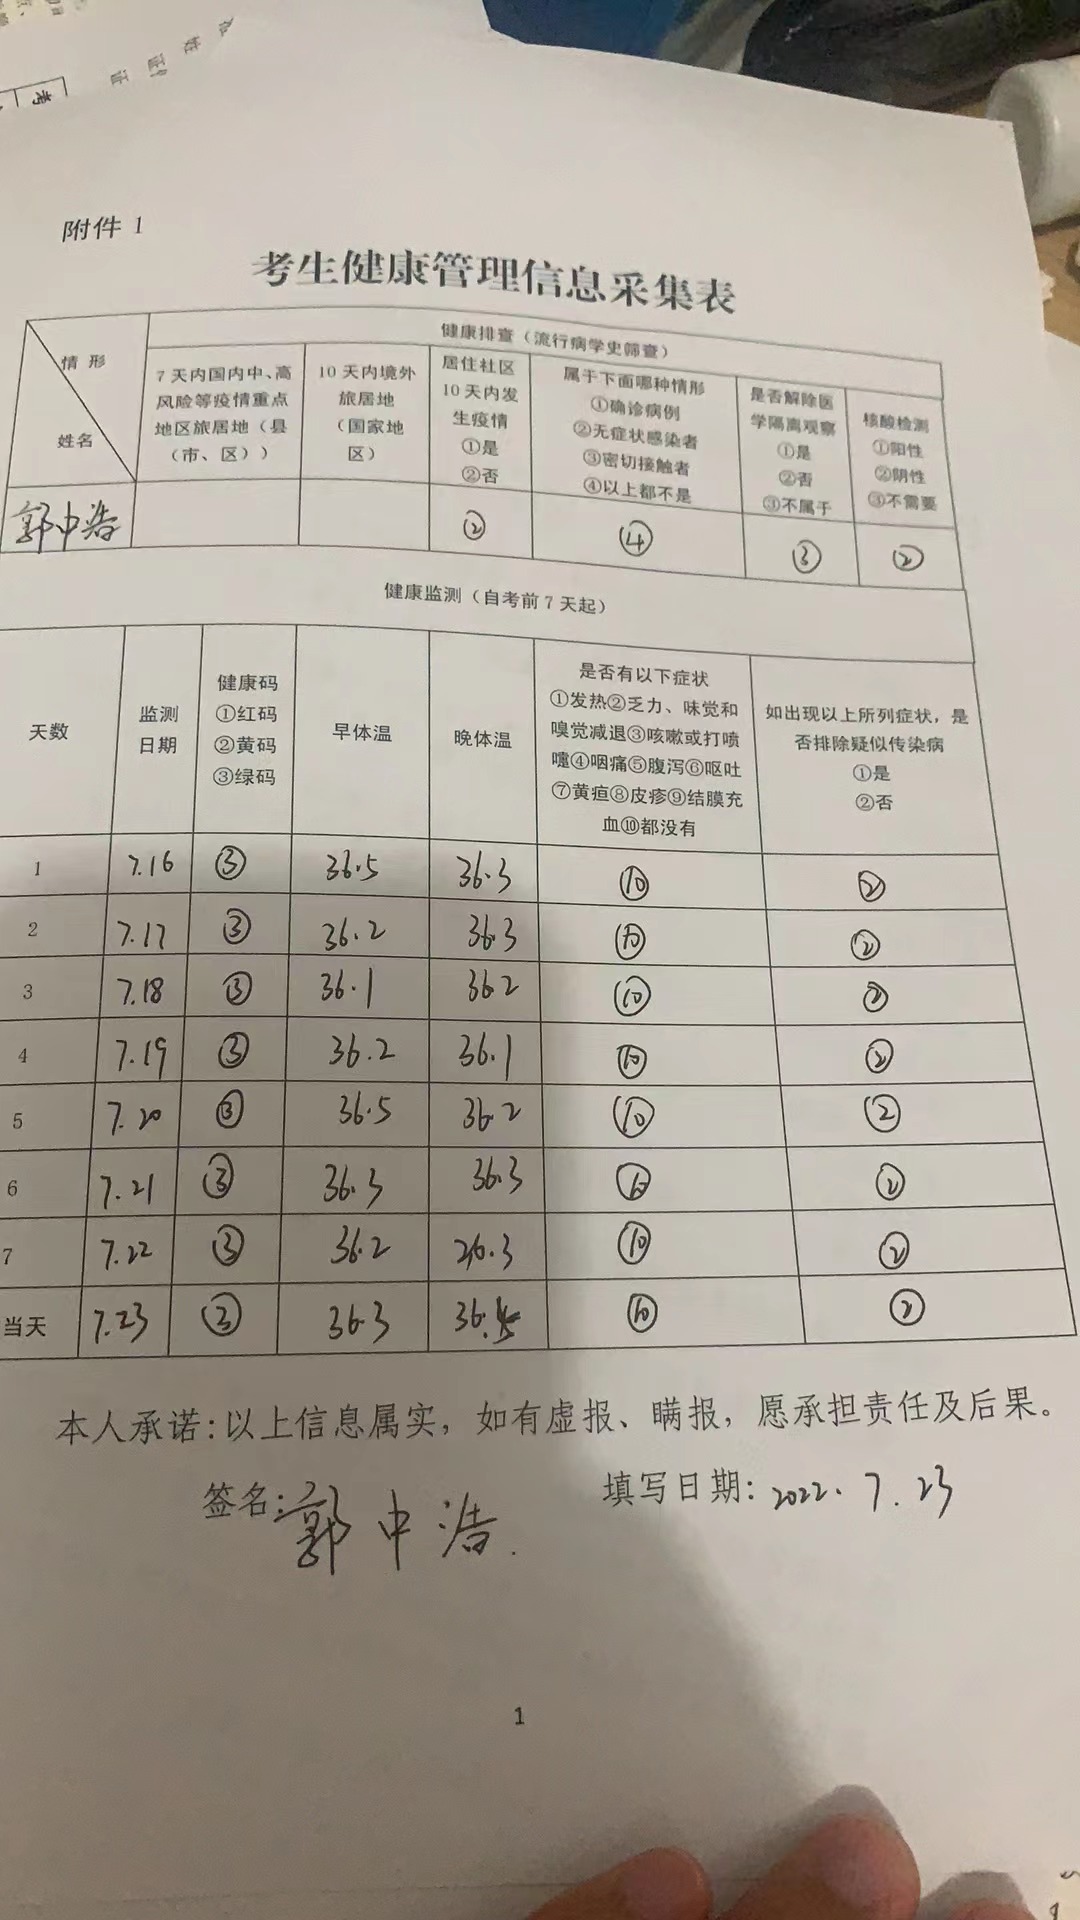 附件 1
考生健康管理信息采集表
情形
姓名
健康排查（流行病学史筛查）
7 天内国内中、高
风险等疫情重点
地区旅居地（县
（市、区））
10 天内境外
旅居地
（国家地
区）
居住社区
10 天内发
生疫情
①是
②否
属于下面哪种情形
①确诊病例
②无症状感染者
③密切接触者
④以上都不是
是否解除医
学隔离观察
①是
②否
③不属于
核酸检测
①阳性
②阴性
③不需要
郭中浩 ② ④ ③ ②
健康监测（自考前 7 天起）
天数
监测
日期
健康码
①红码
②黄码
③绿码
早体温
晚体温
是否有以下症状
①发热②乏力、味觉和
嗅觉减退③咳嗽或打喷
嚏④咽痛⑤腹泻⑥呕吐
⑦黄疸⑧皮疹⑨结膜充
血⑩都没有
如出现以上所列症状，是
否排除疑似传染病
①是
②否
1 7.16 ③ 36.5 36.3 ⑩ ②
2 7.17 ③ 36.2 36.3 ⑩ ②
3 7.18 ③ 36.1 36.2 ⑩ ②
4 7.19 ③ 36.2 36.1 ⑩ ②
5 7.20 ③ 36.5 36.2 ⑩ ②
6 7.21 ③ 36.3 36.3 ⑩ ②
7 7.22 ③ 36.2 26.3 ⑩ ②
当天 7.23 ③ 36.3 36.5 ⑩ ②
本人承诺：以上信息属实，如有虚报、瞒报，愿承担责任及后果。
签名：郭中浩 填写日期：2022.7.23
1